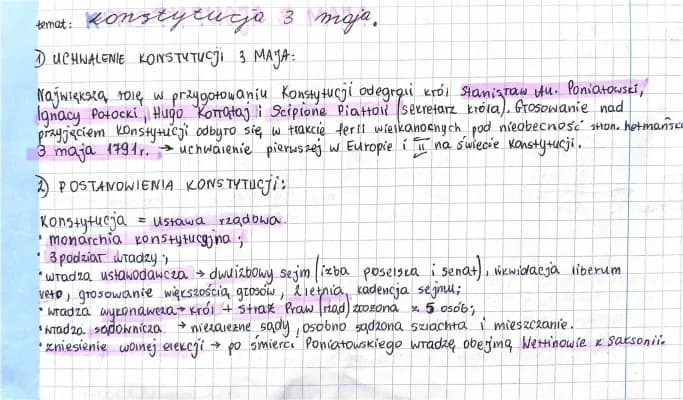 temat: Konstytucja 3 maja.
1) UCHWALENIE KONSTYTUCJI 3 MAJA:
Największą rolę w przygotowaniu Konstytucji odegrali król Stanisław Au. Poniatowski,
Ignacy Potocki, Hugo Kołłątaj i Scipione Piattoli (sekretarz króla). Głosowanie nad
przyjęciem Konstytucji odbyło się w trakcie ferii wielkanocnych pod nieobecność stron. hetmańsk
3 maja 1791r. → uchwalenie pierwszej w Europie i II na świecie Konstytucji.
2) POSTANOWIENIA KONSTYTUCJI:
Konstytucja = ustawa rządowa.
• monarchia konstytucyjna;
• 3podział władzy:,
• władza ustawodawcza → dwuizbowy sejm (izba poselska i senat), likwidacja liberum
veto, głosowanie większością głosów, 2 letnia, kadencja sejmu;
• władza wykonawcza → król + Straż Praw (rząd) złożona z 5 osób;
• władza sądownicza → niezależne sądy, osobno sądzona szlachta i mieszczanie.
• zniesienie wolnej elekcji → po śmierci Poniatowskiego władzę obejmą Wettinowie z Saksonii.